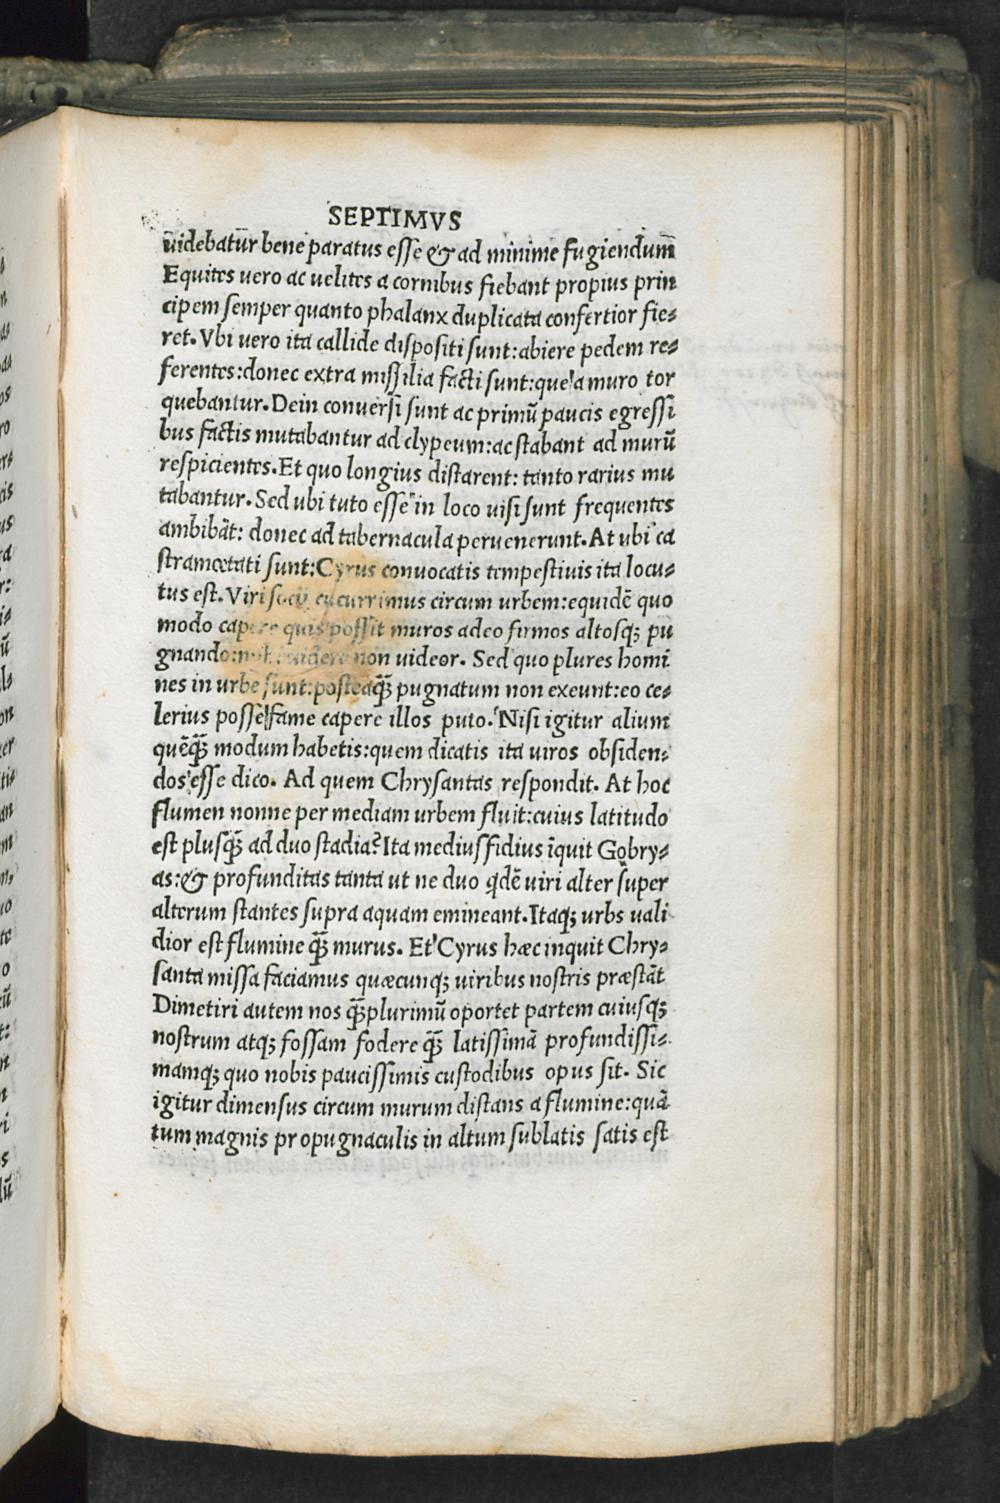 SEPTIMVS
uidebatur bene paratus esse & ad minime fugiendum
Equites uero ac uelites a cornibus fiebant propius prin
cipem semper quanto phalanx duplicata confertior fie-
ret. Vbi uero ita callide dispositi sunt: abiere pedem re-
ferentes: donec extra missilia facti sunt: que a muro tor
quebantur. Dein conuersi sunt ac primū paucis egressi
bus factis mutabantur ad clypeum: ac stabant ad murū
respicientes. Et quo longius distarent: tanto rarius mu
tabantur. Sed ubi tuto esse in loco uisi sunt frequentes
ambibāt: donec ad tabernacula peruenerunt. At ubi ca
strametati sunt: Cyrus conuocatis tempestiuis ita locu-
tus est. Viri socij cucurrimus circum urbem: equidē quo
modo capere quis possit muros adeo firmos altosq; pu
gnando: non uideor. Sed quo plures homi
nes in urbe sunt: posteaq̄ pugnatum non exeunt: eo ce-
lerius posse fame capere illos puto. Nisi igitur alium
quēq̄ modum habetis: quem dicatis ita uiros obsiden-
dos esse dico. Ad quem Chrysantas respondit. At hoc
flumen nonne per mediam urbem fluit: cuius latitudo
est plusq̄ ad duo stadia? Ita mediusfidius īquit Gobry-
as: & profunditas tanta ut ne duo qdē uiri alter super
alterum stantes supra aquam emineant. Itaq; urbs uali
dior est flumine q̄ murus. Et Cyrus hæc inquit Chry-
santa missa faciamus quæcunq; uiribus nostris præstāt
Dimetiri autem nos q̄ plurimū oportet partem cuiusq;
nostrum atq; fossam fodere q̄ latissimā profundissi-
mamq; quo nobis paucissimis custodibus opus sit. Sic
igitur dimensus circum murum distans a flumine: quā
tum magnis propugnaculis in altum sublatis satis est